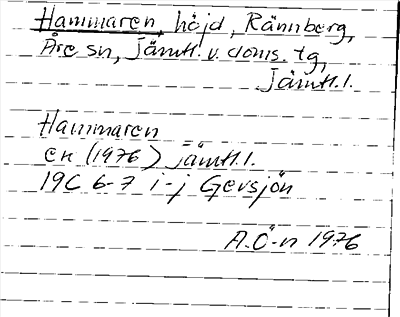 Hammaren, höjd, Rännberg,
Åre sn, Jämtl. v. doms. tg,
Jämtl. l.
Hammaren
ek (1976) Jämtl. l.
19C 6-7 i-j Gevsjön
A.Ö-n 1976